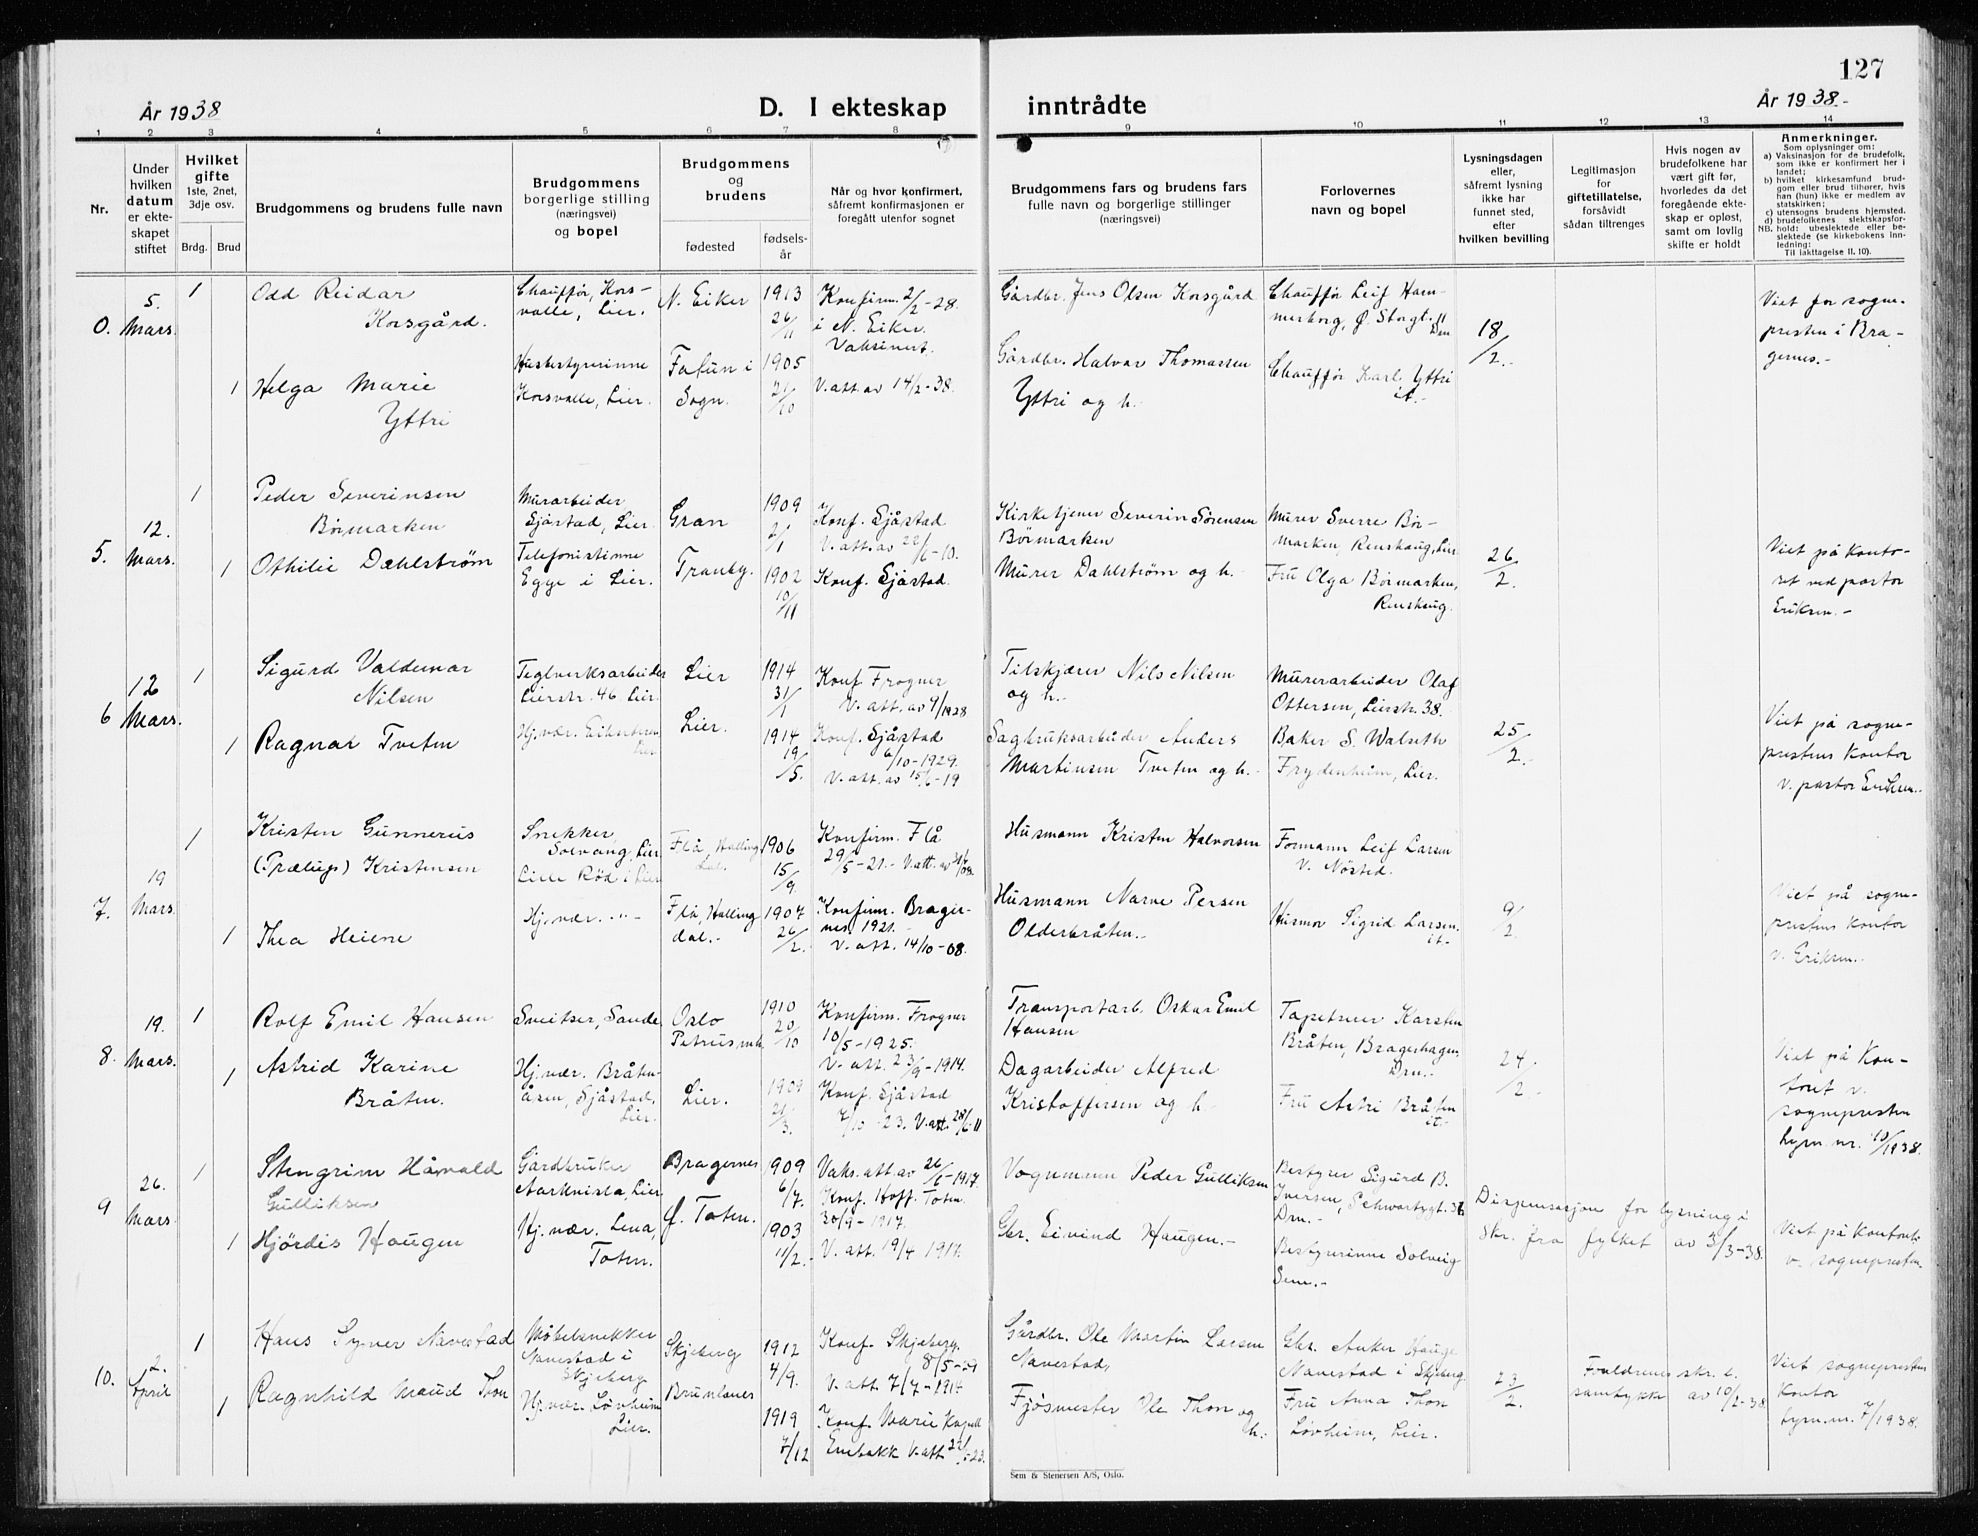 127
År 1938
D. I ekteskap
inntrådte
År 1938.-
1 2 3 4 5 6 7 8 9 10 11 12 13 14
Nr.
Under hvilken datum er ekteskapet stiftet
Hvilket gifte
1ste, 2net, 3dje osv.
Brdg. Brud
Brudgommens og brudens fulle navn
Brudgommens borgerlige stilling (næringsvei) og bopel
Brudgommens og brudens
fødested
fødselsår
Når og hvor konfirmert, såfremt konfirmasjonen er foregått utenfor sognet
Brudgommens fars og brudens fars
fulle navn og borgerlige stillinger
(næringsvei)
Forlovernes
navn og bopel
Lysningsdagen
eller,
såfremt lysning
ikke har
funnet sted,
efter
hvilken bevilling
Legitimasjon
for
giftetillatelse,
forsåvidt
sådan tiltrenges
Hvis nogen av
brudefolkene har
vært gift før,
hvorledes da det
foregående ekte-
skap er opløst,
samt om lovlig
skifte er holdt
Anmerkninger.
Som oplysninger om:
a) Vaksinasjon for de brudefolk, som ikke er konfirmert her i landet;
b) hvilket kirkesamfund brudgom eller brud tilhører, hvis han (hun) ikke er medlem av statskirken;
c) utensogns brudens hjemsted.
d) brudefolkenes slektskapsforhold: ubeslektede eller beslektede (se kirkebokens Innledning:
NB.
Til iakttagelse II. 10).
5. Mars.
1
Odd Reidar
Korsgård.
Chauffør, Kors-
valle, Lier.
N. Eiker
1913
26/11
Konfirm. 2/2-28.
i N. Eiker.
Vaksinert.
Gårdbr. Jens Olsen Korsgård
Chauffør Leif Ham-
merborg, Ø. Storgt. 11
Drm
18/2.-
Viet for sogne-
presten i Bra-
gernes.-
1
Helga Marie
Yttri
Husbestyrerinne
Korsvalle, Lier.
Sogn.
1905
21/10
V. att. av 14/2-38.
Gårdbr. Halvar Thomassen
Yttri og h.
Chauffør Karl Yttri
it.
5.
12.
Mars.
1
Peder Severinsen
Børmarken
Murarbeider
Sjåstad, Lier
Gran
1909
2/1
Konf. Sjåstad
V. att. av 22/6-10.
Kirketjener Severin Sørensen
Børmarken
Murer Sverre Bør-
marken, Renskaug, Lier
26/2.
Viet på konto-
ret ved pastor
Eriksen.-
1
Othilie Dahlstrøm
Telefonistinne
Egge i Lier.
Tranby.
1902
10/11
Konf. Sjåstad.
Murer Dahlstrøm og h.
Fru Olga Børmarken,
Renskaug.
6
12
Mars.
1
Sigurd Valdemar
Nilsen
Teglverksarbeider
Lierstr. 46 Lier.
Lier
1914
31/1
Konf Frogner
V. att. av 9/1928
Nils Nilsen
og h.-
Murerarbeider Olaf
Ottersen, Lierstr. 38.
25/2.-
Viet på sogne-
prestens kontor
v. pastor Eriksen.
1
Ragnar Tveten
Hj. vær.
Lier
Lier.
1914
19/5.
Konf. Sjåstad
6/10-1929.
V. att. av 15/6-19
Sagbruksarbeider Anders
Martinsen Tveten og h.-
Baker S. Walseth
Frydenheim, Lier.
7.
19
Mars.
1
Kristen Gunnerus
(Prælup) Kristensen
Snekker
Solvang, Lier
Lille Rød i Lier
Flå, Halling
dal.
1906
15/9.
Konfirm. Flå
29/5-21.- V. att. av
Husmann Kristen Halvorsen
Formann Leif Larsen
V. Nøsted.
9/2.
Viet på sogne-
prestens kontor
v. Eriksen.
1
Thea Heiene
Hj. vær. -"-
Flå, Halling
dal.-
1907
26/2.
Konfirm. Brager-
nes, 1921.
V. att. 14/10-08.
Husmann Narve Persen
Olderbråten.-
Husmor Sigrid Larsen.
it.-
8.
19.
Mars.
1
Rolf Emil Hansen
Sveitser, Sande
Oslo
Petrus mh.
1910
20/10
Konfirm. Frogner
10/5-1925.
V. att. 23/9-1914.
Transportarb. Oskar Emil
Hansen
Tapetserer Karsten
Bråten, Bragerhagen,
Drm.-
24/2.
Viet på kon-
toret v.
sognepresten
Lysn. nr. 10/1938.
1
Astrid Karine
Bråten.
Hj. vær. Bråten-
åsen, Sjåstad,
Lier.
Lier.
1909
21/3.
Konf. Sjåstad
7/10-23. V. att. 28/6-11
Dagarbeider Alfred
Kristoffersen og h.
Fru Astri Bråten
it.-
9
26.
Mars
1
Stengrim Håvald
Gulliksen
Gårdbruker
Lier
Bragernes
1909
6/7.
Vaks. att. av 26/6-1917.
Konf. Hoff. Toten.
30/9-1917.
Vognmann Peder Gulliksen
Bestyrer Sigurd B.
Iversen, Schwartzgt. 36
Drm.-
Dispensasjon for lysning i
skr. fra fylket av 3/3-38.
Viet på kontoret
v. sognepresten.
1
Hjördis Haugen
Hj. vær. Lena,
Toten.
Ø. Toten.
1903
11/2.
V. att. 19/4 1917.
Gbr. Eivind Haugen.-
Bestyrerinne Solveig
Sem.-
10.
2.
April
1
Hans Syver Navestad
Møbelsnekker
Navestad i
Skjeberg
Skjeberg
1912
4/9.
Konf. Skjeberg.
8/5-29
V. att. 7/7-1914.
Gårdbr. Ole Martin Larsen
Navestad,
Gbr. Anker Hauge
Navestad i Skjeberg
23/2.
Foreldrenes skr. l.
samtykke av 10/2-38
Viet sogneprestens
kontor
Lysn. nr. 7/1938.
1
Ragnhild Maud Thon
Hj. vær. Løvheim
Lier.
Brunlanes
1919
7/12
Konf. Kapell
V. att
Fjøsmester Ole Thon og
h.-
Fru Anna Thon
Løvheim, Lier.
Sem & Stenersen A/S, Oslo.